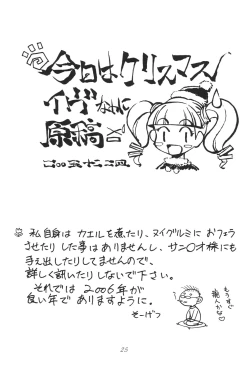 今日はクリスマス
イヴなのに
原稿
私自身は カエルを煮たり、ヌイグルミに おフェラ
させたり した事は ありませんし、サン〇オ様にも
手え出したりしてませんので、
詳しく訊いたりしないで下さい。
それでは 2006年が
良い年で ありますように。
そーげつ
もうすぐ
25